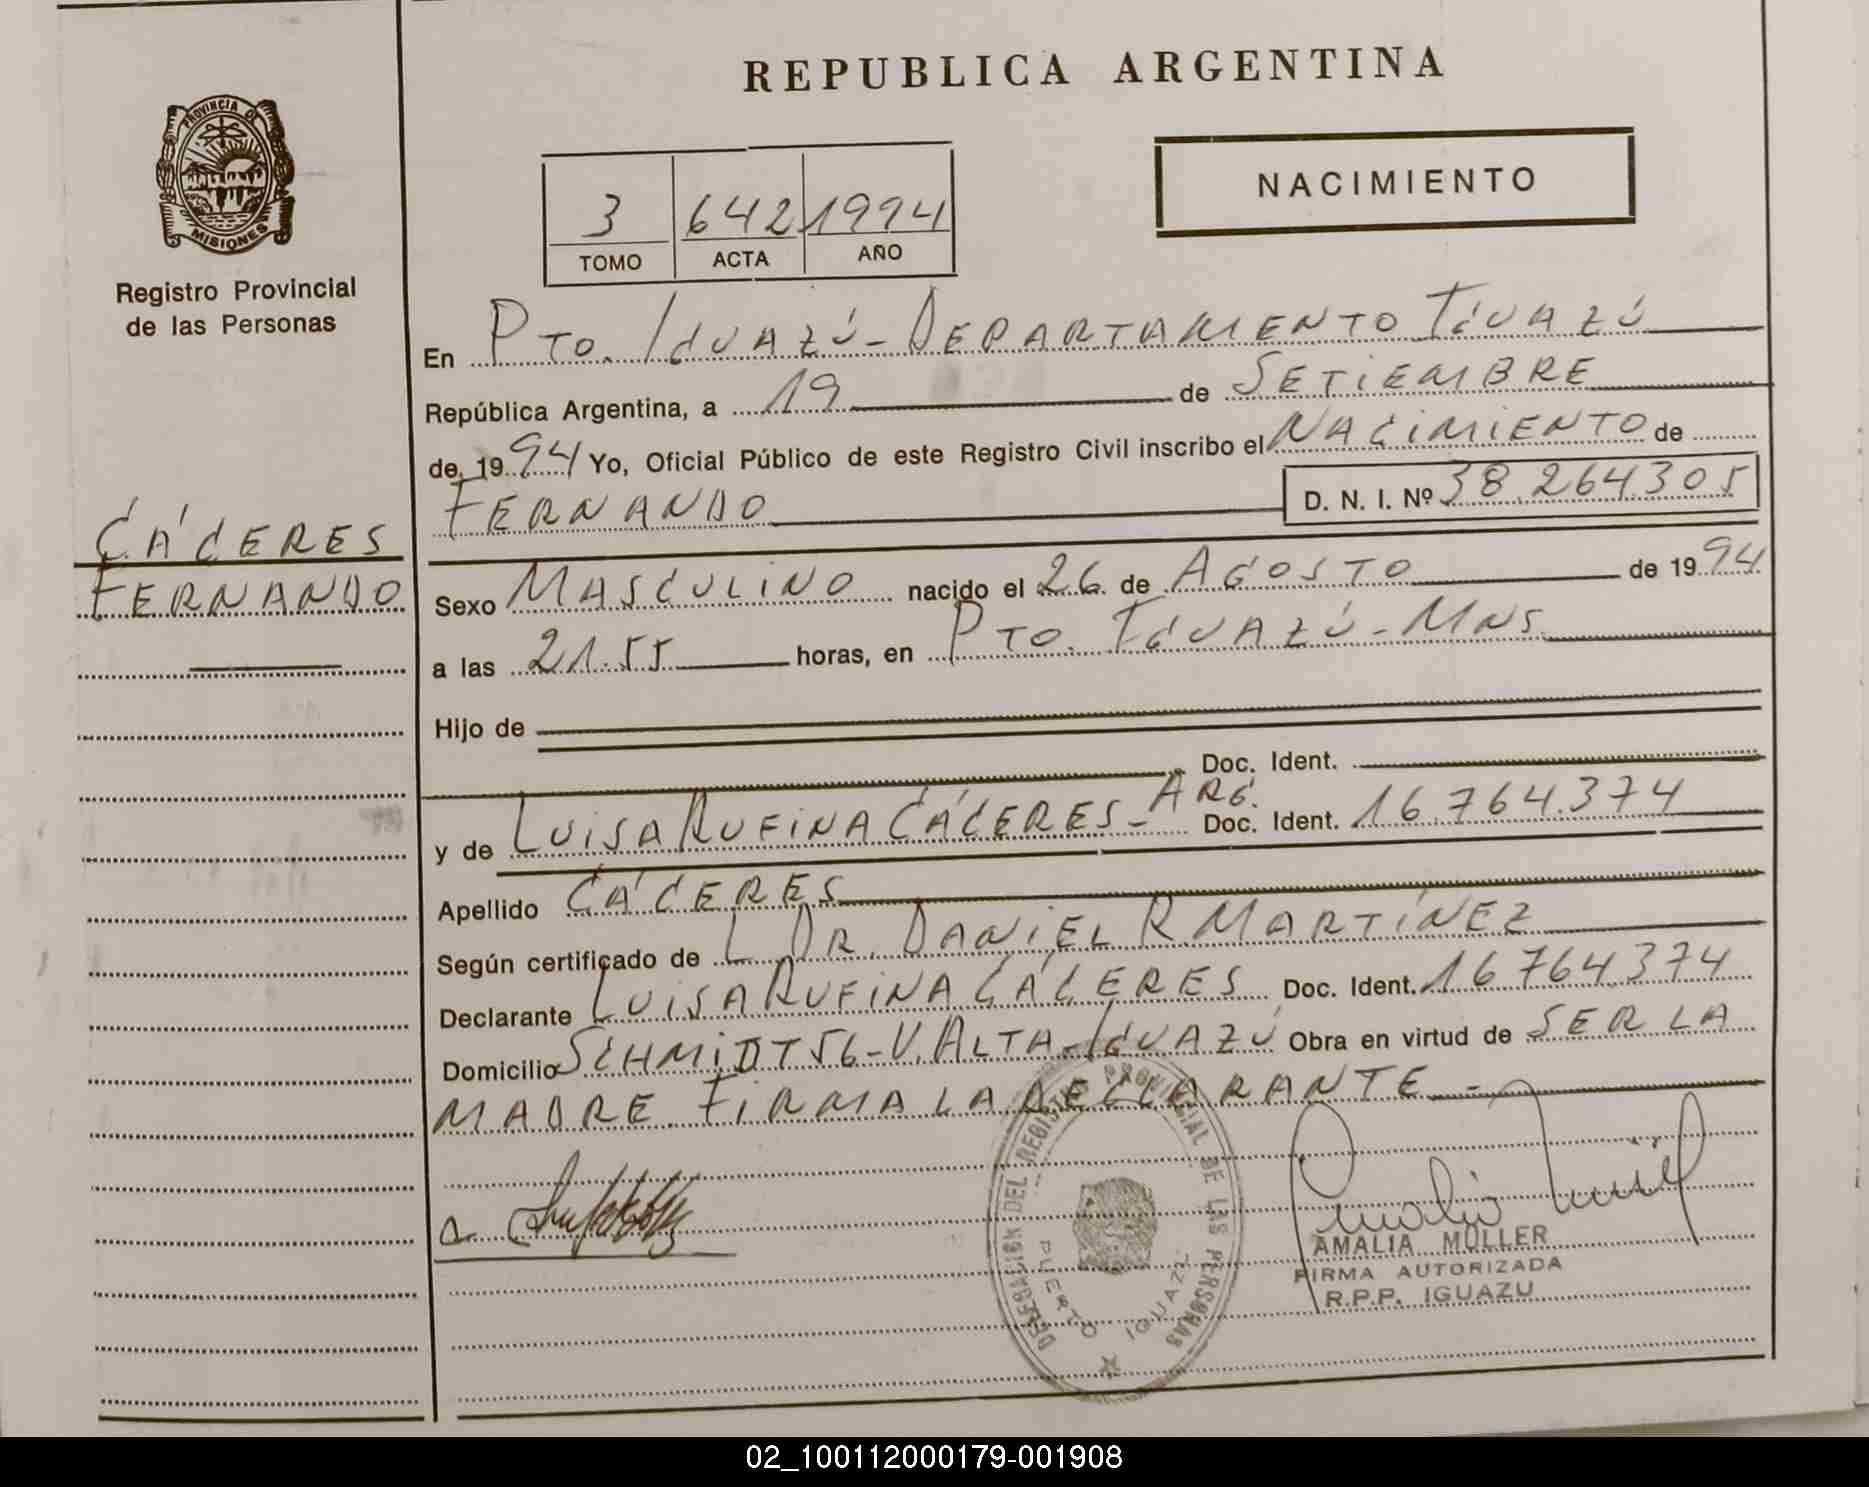 REPUBLICA ARGENTINA
NACIMIENTO
3 642 1994
TOMO ACTA AÑO
PROVINCIA DE
MISIONES
Registro Provincial
de las Personas
CÁCERES
FERNANDO
En PTO. IGUAZÚ - DEPARTAMENTO IGUAZÚ
República Argentina, a 19 de SETIEMBRE
de 1994 Yo, Oficial Público de este Registro Civil inscribo el NACIMIENTO de
FERNANDO D. N. I. Nº 38.264.305
Sexo MASCULINO nacido el 26 de AGOSTO de 1994
a las 21.55 horas, en PTO. IGUAZÚ - MNS.
Hijo de
Doc. Ident.
y de LUISA RUFINA CÁCERES - ARG. Doc. Ident. 16.764.374
Apellido CÁCERES
Según certificado de L DR. DANIEL R. MARTÍNEZ
Declarante LUISA RUFINA CÁCERES Doc. Ident. 16.764.374
Domicilio SCHMIDT 56 - V. ALTA - IGUAZÚ Obra en virtud de SER LA
MADRE. FIRMA LA DECLARANTE. -
DELEGACION DEL REGISTRO PROVINCIAL DE LAS PERSONAS
PUERTO IGUAZU
AMALIA MULLER
FIRMA AUTORIZADA
R.P.P. IGUAZU
02_100112000179-001908